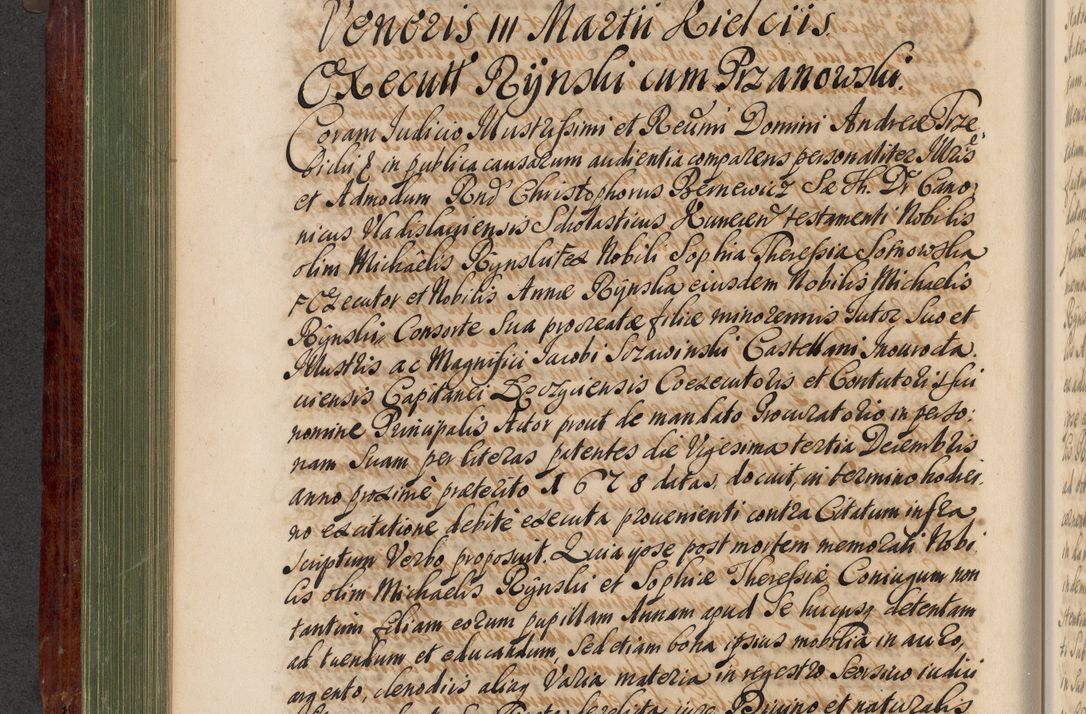 Veneris 111 Martii Kielciis.
Executt Rÿnski cum Przanowski.
Coram Iudicio Illustrissimi et Reu͠mi Domini Andreæ Trze„
bicki & in publica causarum audientia comparens personaliter Illris
et Admodum Rnd9 Christophorus Bernewicz Se Th. Dr Cano„
nicus Vladislauiensis Scholasticus Kunecen testamenti Nobilis
olim Michaëlis Rÿnski Nobili Sophia Theressia Sosnowska
Executor et Nobilis Annæ Rÿnska eiusdem Nobilis Michaelis
Rÿnski Consorte Sua procreatæ filiæ minorennis Tutor Suo et
Illustris ac Magnifici Iacobi Szczawinski Castellani Inowocla.
uiensis Capitanei Łęczyciensis Coexecutoris et Contutoris sui
nomine Principalis Actor prout de mandato Procuratorio in perso„
nam Suam per literas patentes die Vigesima tertia Decembris
anno proximè præterito 1678 datas, docuit, in termino hodier„
no ex citatione debitè executa prouenienti contra Citatum infra
scriptum Verbo proposuit. Quia ipse post mortem memorati Nobi„
lis olim Michaelis Rÿnski et Sophiæ Theressiæ Coniugum non
tantum filiam eorum pupillam Annam apud Se hucusq detentam
ad tuendum et educandum, Sed etiam bona ipsius mobilia in auro,
argento, clenodiis aliaq Varia materia in regestro Seorsiuo iudici
et naturalis